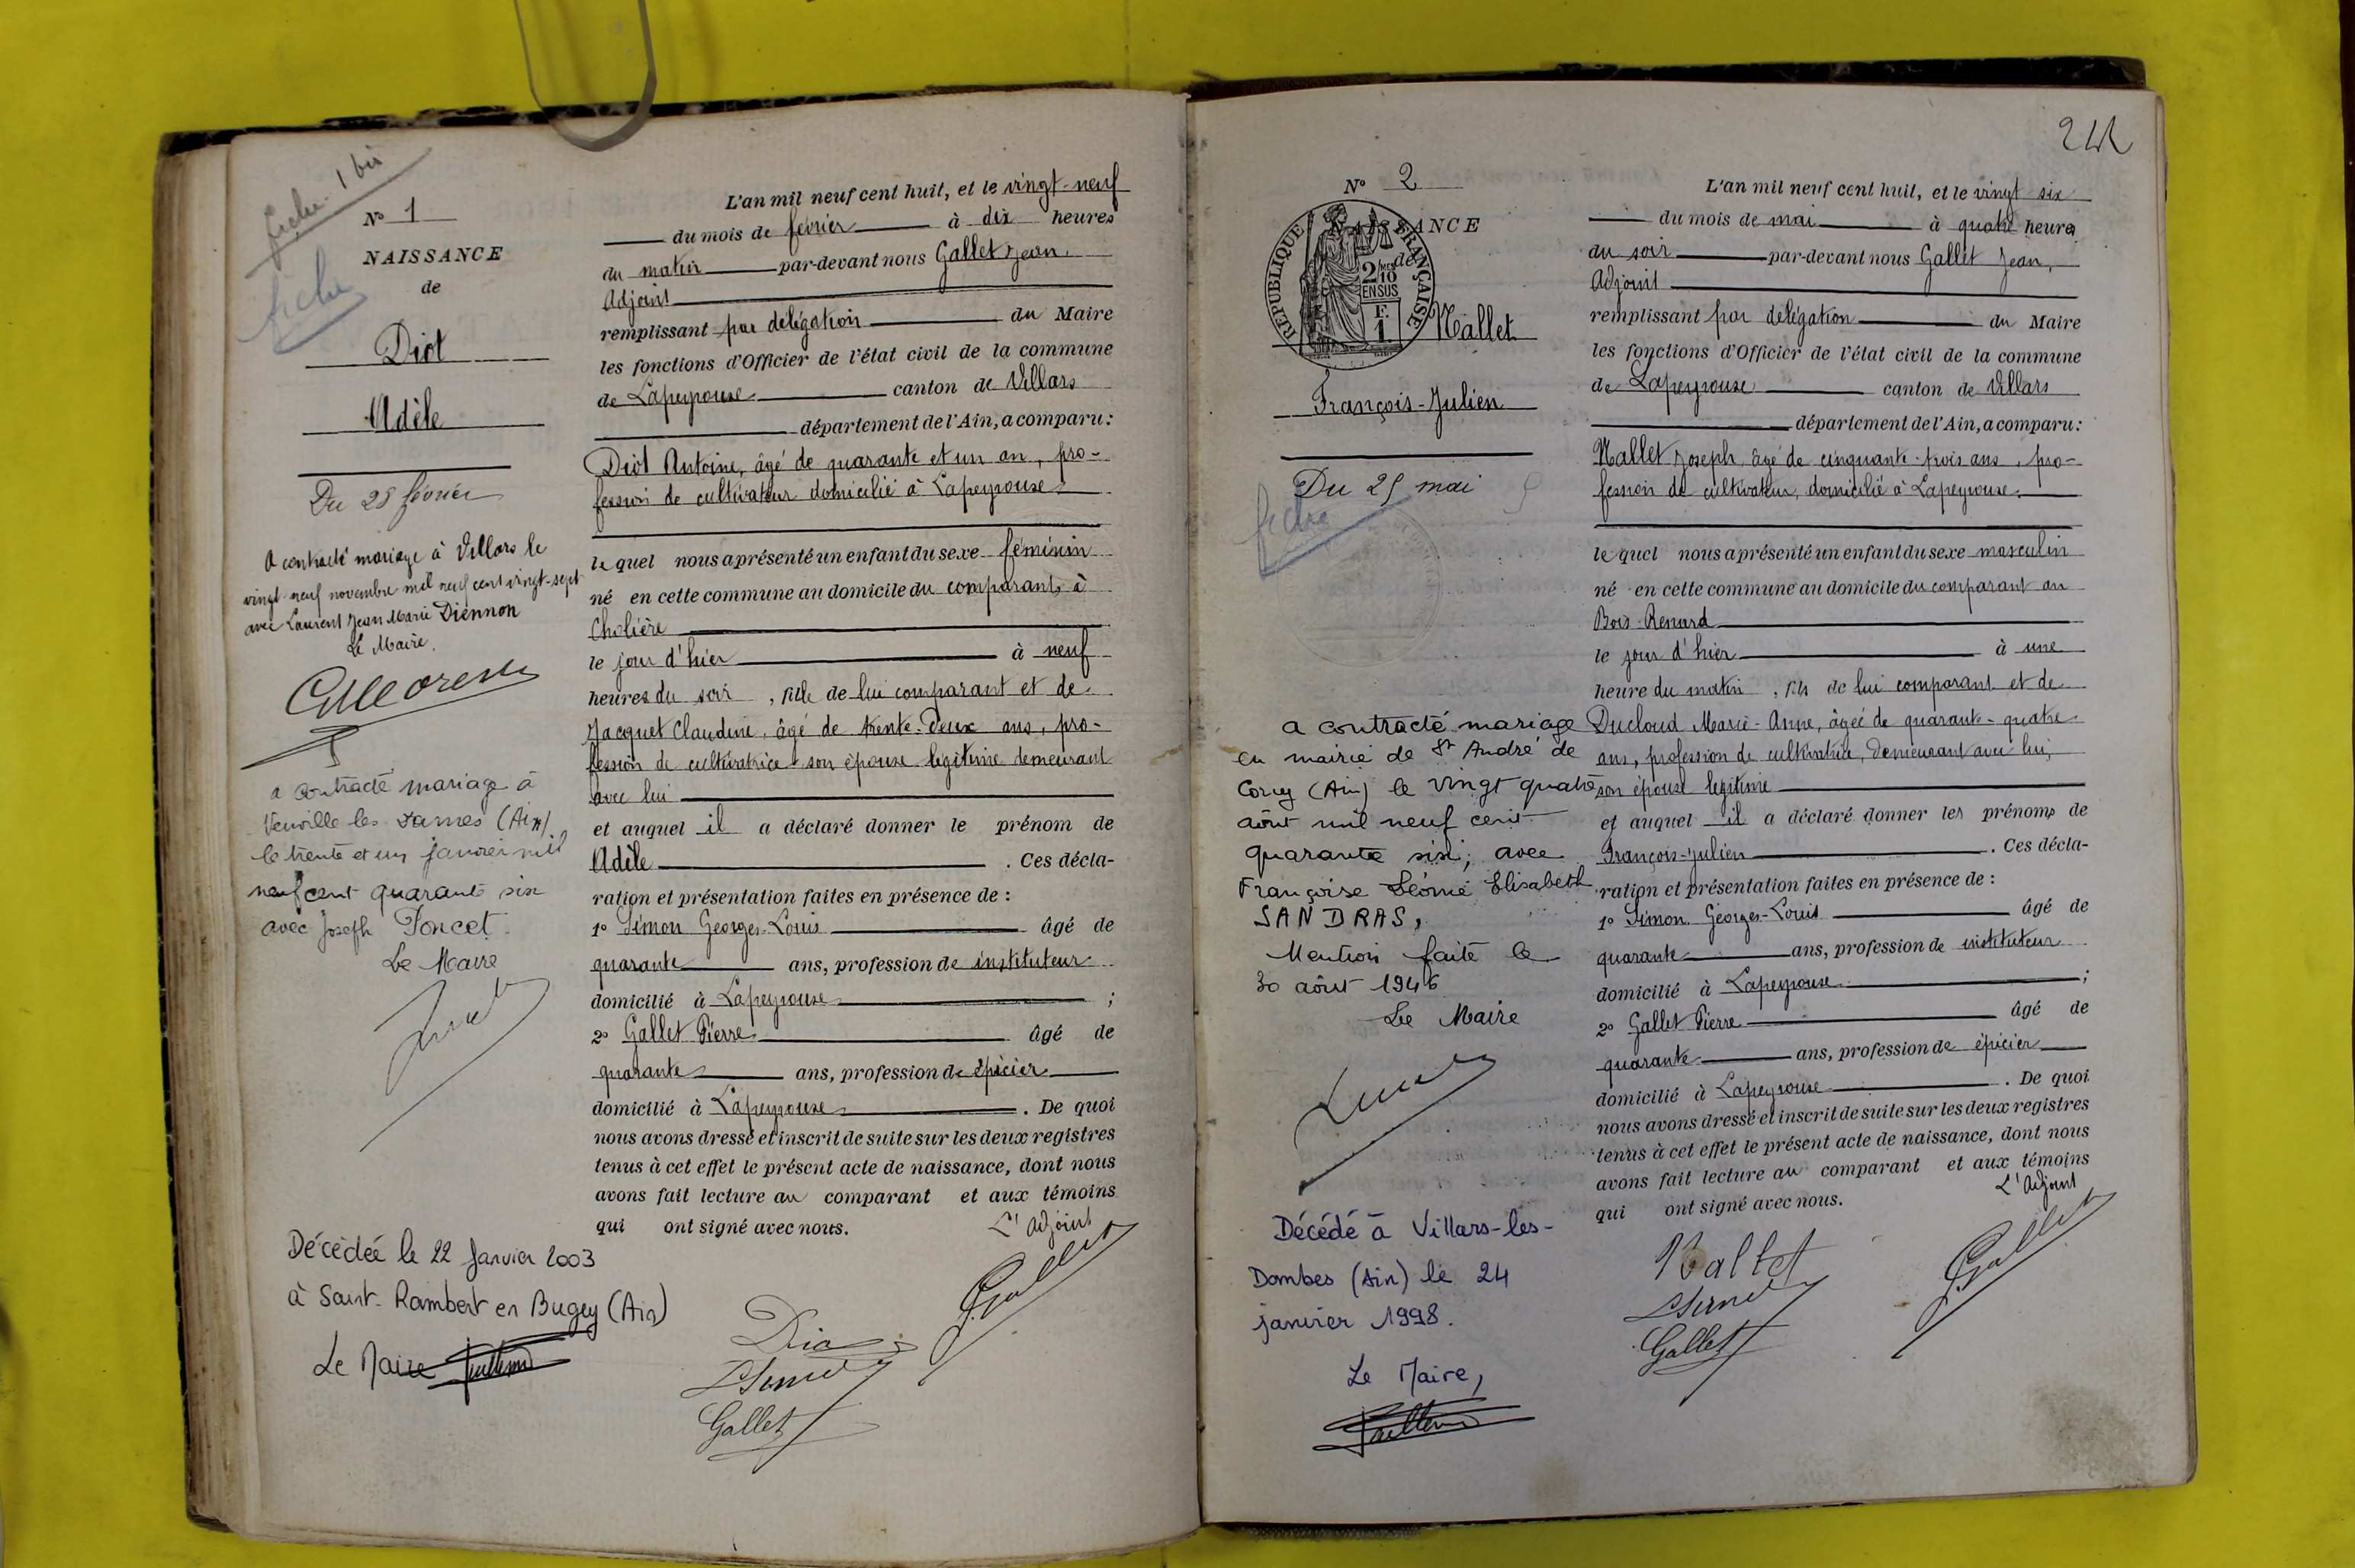 fiche 1 bis
N° 1
NAISSANCE
de
fiche
Diot
Adèle
Du 28 février
A contracté mariage à Villars le
vingt-neuf novembre mil neuf cent vingt-sept
avec Laurent Jean Marie Diennon
Le Maire
a contracté mariage à
Neuville les Dames (Ain)
le trente et un janvier mil
neuf cent quarante six
avec Joseph Poncet.
Le Maire
Décédée le 22 Janvier 2003
à Saint-Rambert en Bugey (Ain)
Le Maire
L'an mil neuf cent huit, et le vingt-neuf
du mois de février à dix heures
du matin par-devant nous Gallet Jean,
Adjoint
remplissant par délégation du Maire
les fonctions d'Officier de l'état civil de la commune
de Lapeyrouse canton de Villars
département de l'Ain, a comparu:
Diot Antoine, âgé de quarante et un an, pro-
fession de cultivateur domicilié à Lapeyrouse
le quel nous a présenté un enfant du sexe féminin
né en cette commune au domicile du comparant, à
Cholière
le jour d'hier à neuf
heures du soir, fille de lui comparant et de
Jacquet Claudine, âgé de trente-deux ans, pro-
fession de cultivatrice son épouse légitime demeurant
avec lui
et auquel il a déclaré donner le prénom de
Adèle. Ces décla-
ration et présentation faites en présence de :
1° Simon Georges-Louis âgé de
quarante ans, profession de instituteur
domicilié à Lapeyrouse ;
2° Gallet Pierre âgé de
quarante ans, profession de épicier
domicilié à Lapeyrouse. De quoi
nous avons dressé et inscrit de suite sur les deux registres
tenus à cet effet le présent acte de naissance, dont nous
avons fait lecture au comparant et aux témoins
qui ont signé avec nous.
L'Adjoint
Gallet
Diot
Gallet
241
N° 2
NAISSANCE
de
REPUBLIQUE FRANÇAISE
2/10
EN SUS
F.
1.
Nallet
François-Julien
Du 25 mai
fiche
a contracté mariage
en mairie de St André de
Corcy (Ain) le vingt quatre
août mil neuf cent
quarante six, avec
Françoise Léonie Elisabeth
SANDRAS,
Mention faite le
30 août 1946
Le Maire
Décédé à Villars-les-
Dombes (Ain) le 24
janvier 1998.
Le Maire,
L'an mil neuf cent huit, et le vingt six
du mois de mai à quatre heures
du soir par-devant nous Gallet Jean,
Adjoint
remplissant par délégation du Maire
les fonctions d'Officier de l'état civil de la commune
de Lapeyrouse canton de Villars
département de l'Ain, a comparu:
Nallet Joseph, âgé de cinquante-trois ans, pro-
fession de cultivateur, domicilié à Lapeyrouse.
le quel nous a présenté un enfant du sexe masculin
né en cette commune au domicile du comparant au
Bois-Renard
le jour d'hier à une
heure du matin, fils de lui comparant et de
Ducloud Marie-Anne, âgée de quarante-quatre
ans, profession de cultivatrice, demeurant avec lui,
son épouse légitime
et auquel il a déclaré donner les prénoms de
François-Julien. Ces décla-
ration et présentation faites en présence de :
1° Simon Georges-Louis âgé de
quarante ans, profession de instituteur
domicilié à Lapeyrouse ;
2° Gallet Pierre âgé de
quarante ans, profession de épicier
domicilié à Lapeyrouse. De quoi
nous avons dressé et inscrit de suite sur les deux registres
tenus à cet effet le présent acte de naissance, dont nous
avons fait lecture au comparant et aux témoins
qui ont signé avec nous.
L'Adjoint
Nallet
Gallet
Gallet